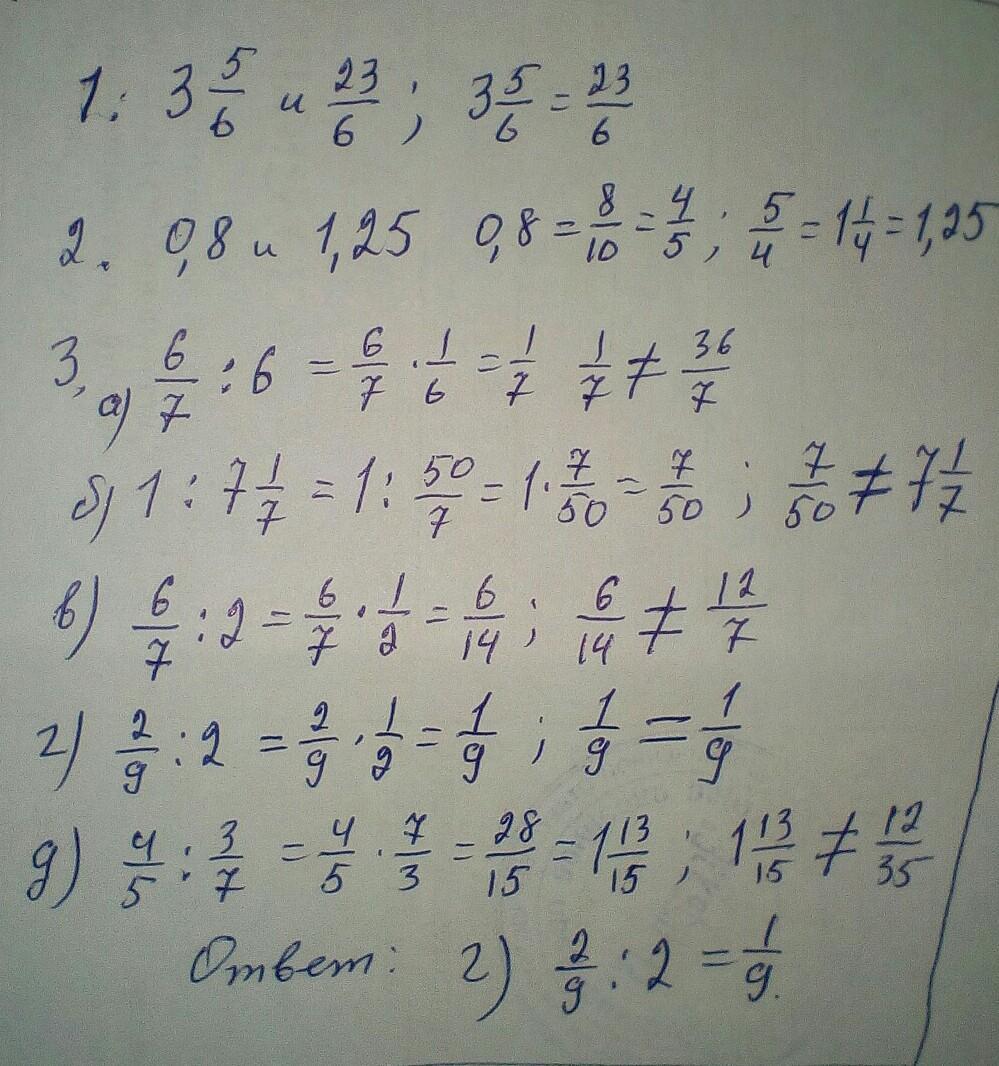 1. 3 5/6 и 23/6 ; 3 5/6 = 23/6
2. 0,8 и 1,25 0,8 = 8/10 = 4/5 ; 5/4 = 1 1/4 = 1,25
3, а) 6/7 : 6 = 6/7 · 1/6 = 1/7 1/7 ≠ 36/7
б) 1 : 7 1/7 = 1 : 50/7 = 1 · 7/50 = 7/50 ; 7/50 ≠ 7 1/7
в) 6/7 : 2 = 6/7 · 1/2 = 6/14 ; 6/14 ≠ 12/7
г) 2/9 : 2 = 2/9 · 1/2 = 1/9 ; 1/9 = 1/9
д) 4/5 : 3/7 = 4/5 · 7/3 = 28/15 = 1 13/15 ; 1 13/15 ≠ 12/35
Ответ: г) 2/9 : 2 = 1/9.